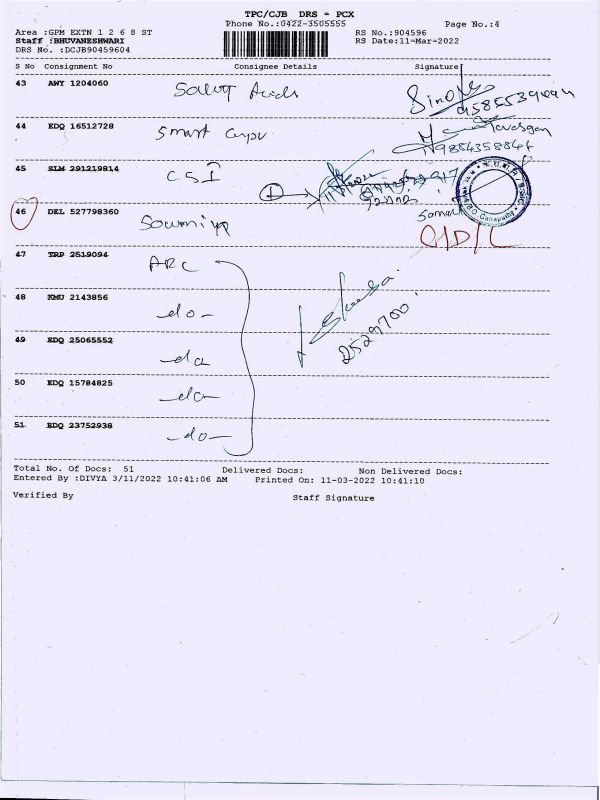 TPC/CJB DRS - PCX
Phone No.:0422-3505555
Page No.:4
Area :GPM EXTN 1 2 6 8 ST
RS No.:904596
Staff :BHUVANESHWARI
RS Date:11-Mar-2022
DRS No. :DCJB90459604
S No Consignment No Consignee Details Signature
43 AWY 1204060
44 EDQ 16512728 Smart
45 SLM 291219814 CSI
46 DEL 527798360 Soumiya
47 TRP 2519094 ARC
48 KMU 2143856 -do-
49 EDQ 25065552 -do
50 EDQ 15784825 -do-
51 EDQ 23752938 -do-
2529700
Total No. Of Docs: 51 Delivered Docs: Non Delivered Docs:
Entered By :DIVYA 3/11/2022 10:41:06 AM Printed On: 11-03-2022 10:41:10
Verified By Staff Signature